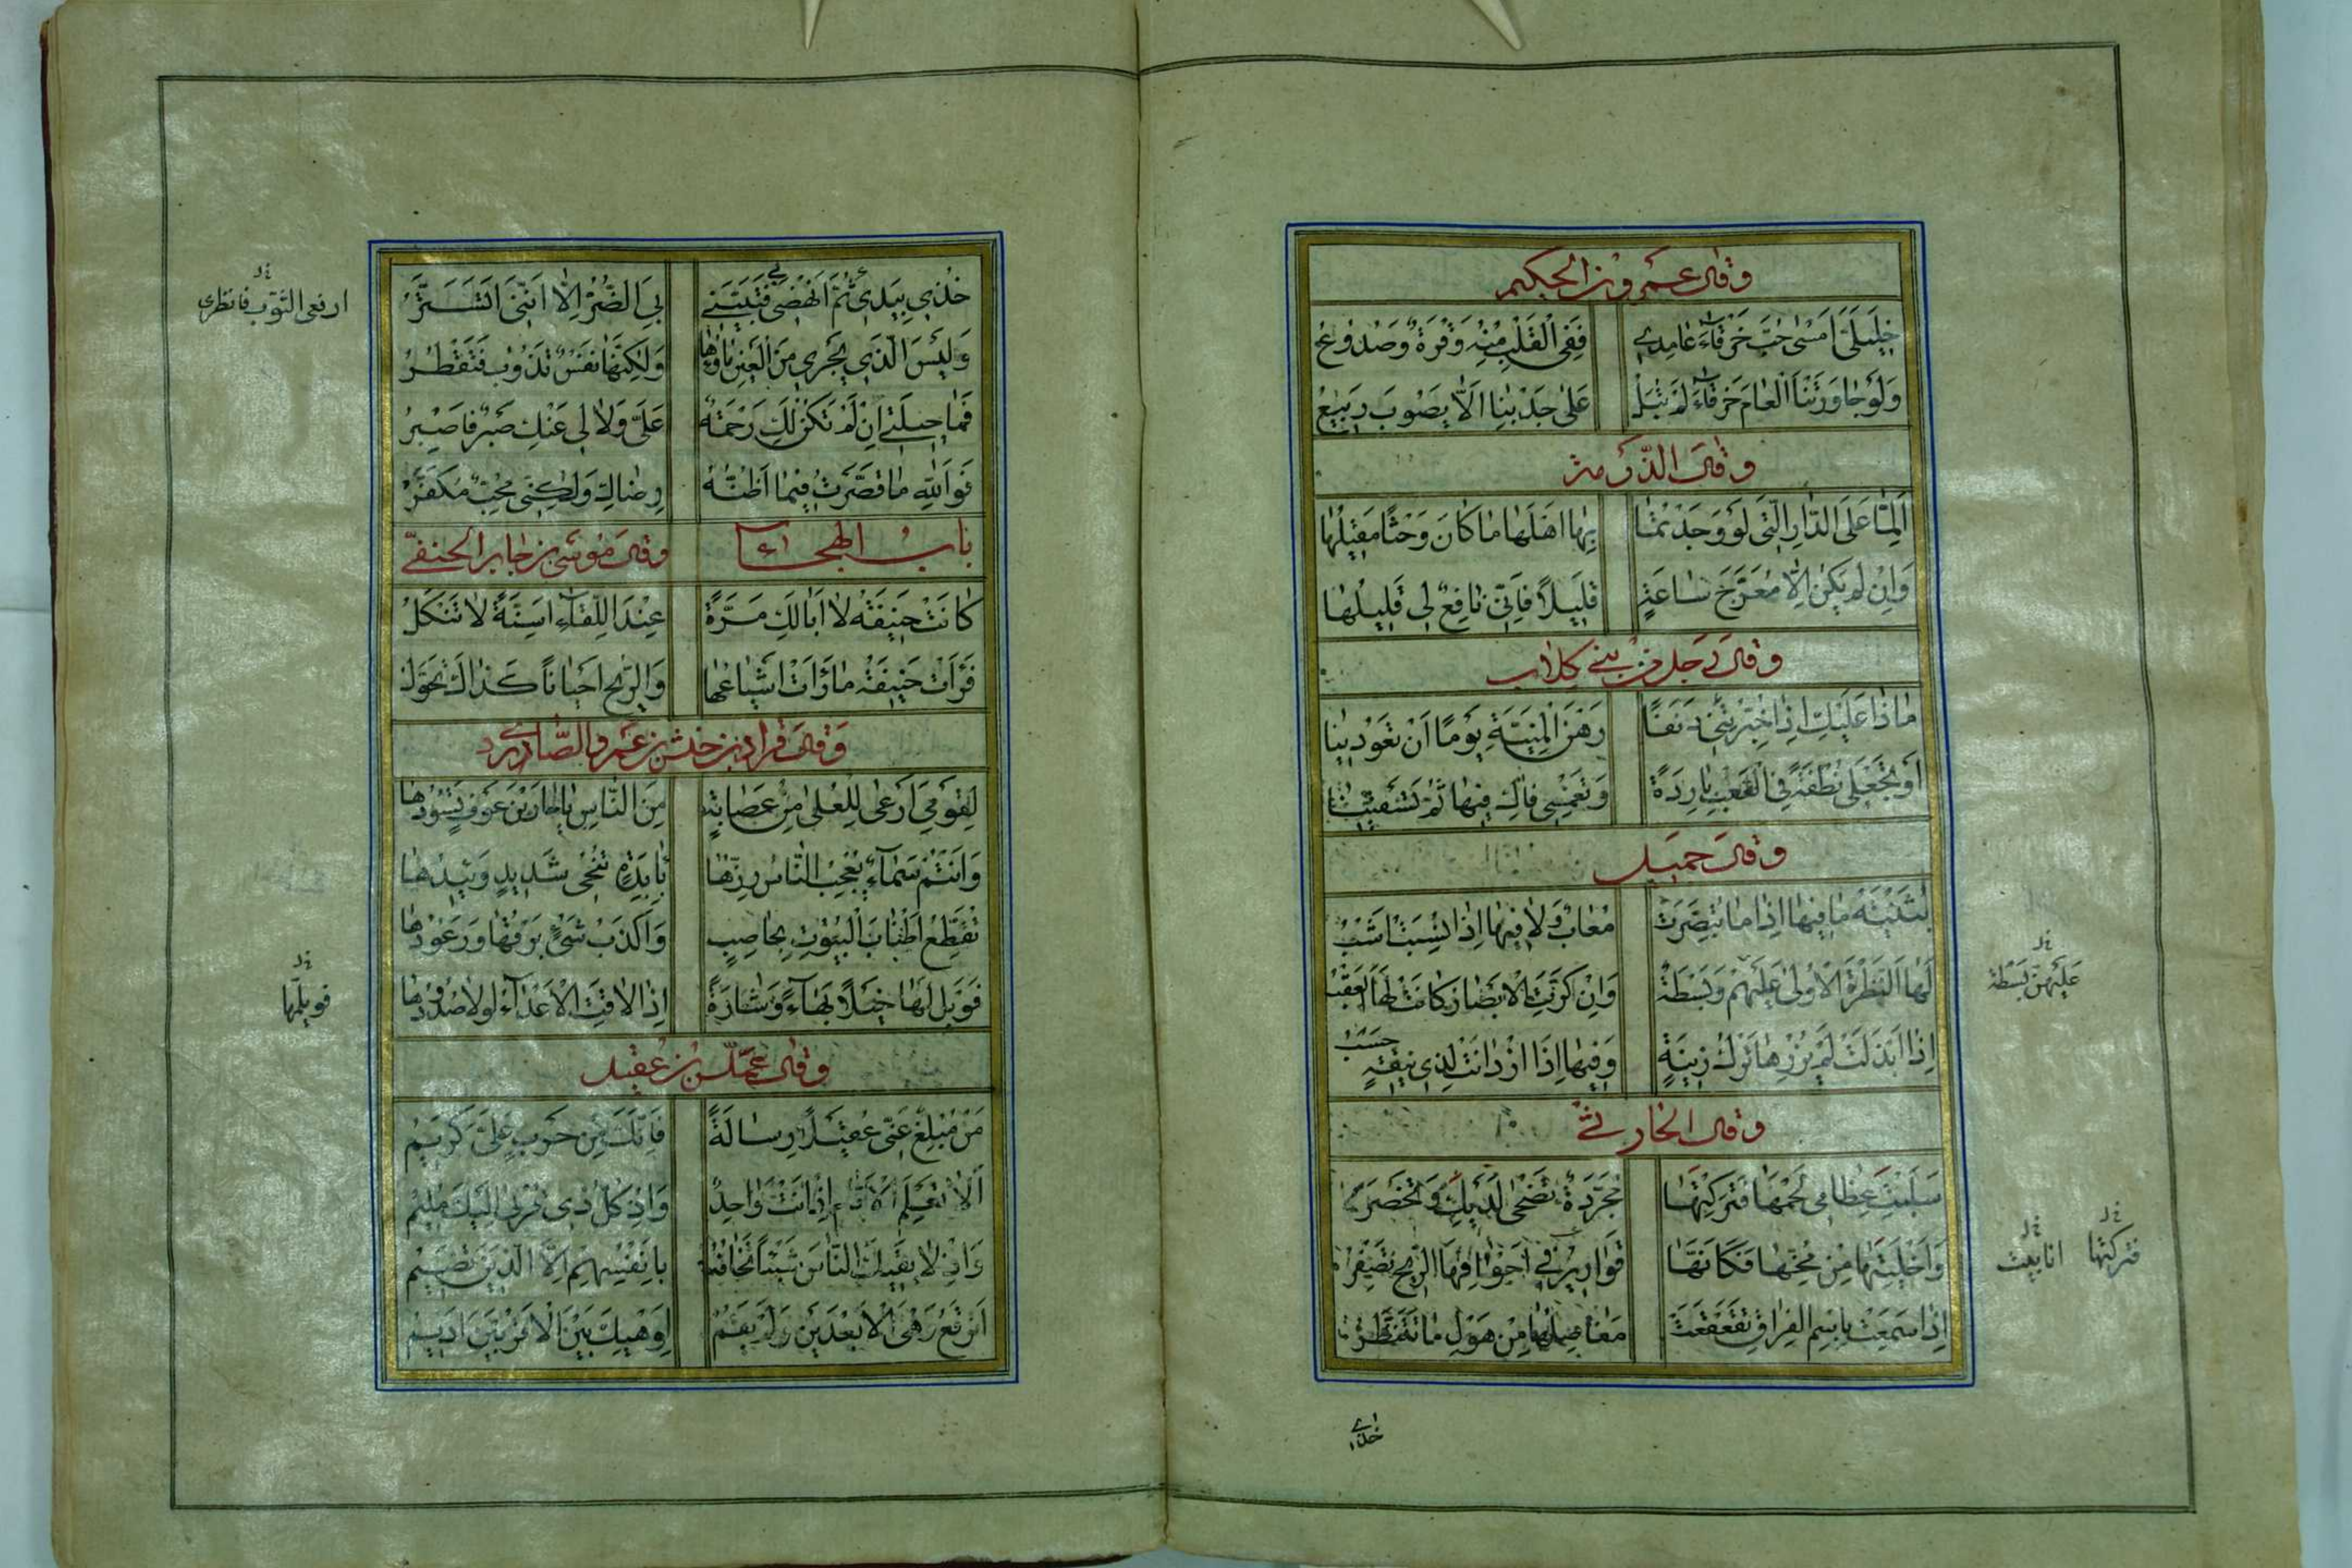 وقال عمرو بن الحكيم
خَلِيلَيَّ اَمْسٰى حُبُّ خَرْقَاءَ عَامِدِي فَفِي الْقَلْبِ مِنْهُ وَقْرَةٌ وَصُدُوعُ
وَلَوْ جَاوَرَتْنَا الْعَامَ خَرْقَاءُ لَمْ نُبَلْ عَلٰى جَدْبِنَا اَلَّا يَصُوبَ رَبِيعُ
وقال الذرمة
اَلِمَّا عَلَى الدَّارِ الَّتِي لَوْ وَجَدْتُمَا بِهَا اَهْلَهَا مَا كَانَ وَحْشًا مَقِيلُهَا
وَاِنْ لَمْ يَكُنْ اِلَّا مُعَرَّجَ سَاعَةٍ قَلِيلاً فَاِنِّي نَافِعٌ لِي قَلِيلُهَا
وقال رجل من بني كلاب
مَاذَا عَلَيْكِ اِذَا خُبِّرْتِنِي دَنَفًا رَهْنَ الْمَنِيَّةِ يَوْمًا اَنْ تَعُودِينَا
اَوْ تَجْعَلِي نُطْفَةً فِي الْقَعْبِ بَارِدَةً وَتَغْمِسِي فَاكِ فِيهَا ثُمَّ تَسْقِينَا
وقال جميل
بُثَيْنَةُ مَا فِيهَا اِذَا مَا تُبُصِّرَتْ مُعَابٌ وَلَا فِيهَا اِذَا نُسِبَتْ اَشَبُ
لَهَا النَّظْرَةُ الْاُولٰى عَلَيْهِمْ وَبَسْطَةٌ وَاِنْ كَرَّتِ الْاَبْصَارُ كَانَتْ لَهَا الْعَقْبُ
عليهن بسطة
اِذَا ابْتَذَلَتْ لَمْ يُزْرِهَا تَرْكُ زِينَةٍ وَفِيهَا اِذَا ازْدَانَتْ لِذِي نِيقَةٍ حَسَبُ
وقال الحارثي
سَلَبْتِ عِظَامِي لَحْمَهَا فَتَرَكْتِهَا مُجَرَّدَةً تَضْحٰى لَدَيْكِ وَتَخْصَرُ
فتركتها
وَاَخْلَيْتِهَا مِنْ مُخِّهَا فَكَاَنَّهَا قَوَارِيرُ فِي اَجْوَافِهَا الرِّيحُ تَصْفِرُ
انابيب
اِذَا سَمِعَتْ بِاسْمِ الْفِرَاقِ تَقَعْقَعَتْ مَفَاصِلُهَا مِنْ هَوْلِ مَا تَتَفَطَّرُ
خُذِي بِيَدِي ثُمَّ انْهَضِي فَتَبَيَّنِي بِيَ الضُّرُّ اِلَّا اَنَّنِي اَتَسَتَّرُ
ارفعي الثوب فانظري
وَلَيْسَ الَّذِي يَجْرِي مِنَ الْعَيْنِ مَاؤُهَا وَلٰكِنَّهَا نَفْسٌ تَذُوبُ فَتَقْطُرُ
فَمَا حِيلَتِي اِنْ لَمْ تَكُنْ لَكِ رَحْمَةٌ عَلَيَّ وَلَا لِي عَنْكِ صَبْرٌ فَاَصْبِرُ
فَوَاللّٰهِ مَا قَصَّرْتُ فِيمَا اَظُنُّهُ رِضَاكِ وَلٰكِنِّي مُحِبٌّ مُكَفَّرُ
باب الهجاء وقال موسى بن جابر الحنفي
كَانَتْ حَنِيفَةُ لَا اَبَالَكِ مَرَّةً عِنْدَ اللِّقَاءِ اَسِنَّةً لَا تَنْكَلُ
فَرَاَتْ حَنِيفَةُ مَا رَاَتْ اَشْيَاعُهَا وَالرِّيحُ اَحْيَانًا كَذَاكَ تَحَوَّلُ
وقال قراد بن حنش بن عمرو الصاردي
لَقَوْمِي اَرْعٰى لِلْعُلٰى مِنْ عِصَابَةٍ مِنَ النَّاسِ يَا حَارِ بْنَ عَوْفٍ تَسُودُهَا
وَاَنْتُمْ سَمَاءٌ يُعْجِبُ النَّاسَ رِزُّهَا بِآبِدَةٍ تُنْحِي شَدِيدٍ وَئِيدُهَا
تُقَطِّعُ اَطْنَابَ الْبُيُوتِ بِحَاصِبٍ وَاَكْذَبُ شَيْءٍ بَرْقُهَا وَرُعُودُهَا
فَوَيْلٌ لَهَا خَيْلًا بَهَاءً وَشَارَةً اِذَا لَاقَتِ الْاَعْدَاءَ لَوْلَا صُدُودُهَا
فويلمها
وقال عملس بن عقيل
مَنْ مُبْلِغٌ عَنِّي عُقَيْلًا رِسَالَةً فَاِنَّكَ مِنْ حَرْبٍ عَلَيَّ كَرِيمُ
اَلَمْ تَعْلَمِ الْاَيَّامَ اِذْ اَنْتَ وَاحِدٌ وَاِذْ كُلُّ ذِي قُرْبٰى اِلَيْكَ مُلِيمُ
وَاِذْ لَا يَقِيكَ النَّاسُ شَيْئًا تَخَافُهُ بِاَنْفُسِهِمْ اِلَّا الَّذِينَ تَضِيمُ
اَتَرْقَعُ وَهْيَ الْاَبْعَدِينَ وَلَمْ يَقُمْ لِوَهْيِكَ بَيْنَ الْاَقْرَبِينَ اَدِيمُ